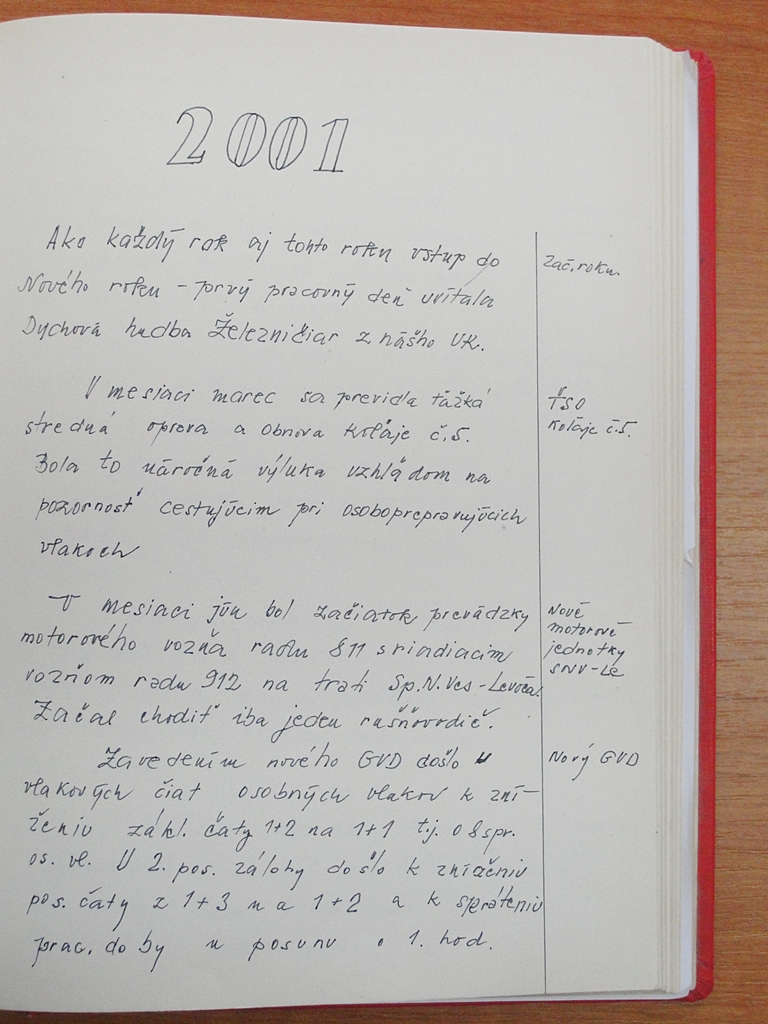 2001
Ako každý rok aj tohto roku vstup do
Nového roku - prvý pracovný deň uvítala
Dychová hudba Železničiar z nášho UK.
Zač. roku.
V mesiaci marec sa previdla ťažká
stredná oprava a obnova koľaje č.5.
Bola to náročná výluka vzhľadom na
pozornosť cestujúcim pri osoboprepravujúcich
vlakoch
ŤSO
koľaje č.5.
V mesiaci jún bol začiatok prevádzky
motorového vozňa radu 811 s riadiacim
vozňom radu 912 na trati Sp.N.Ves - Levoča.
Začal chodiť iba jeden rušňovodič.
Nové
motorové
jednotky
SNV-Le
Zavedením nového GVD došlo u
vlakových čiat osobných vlakov k zní-
ženiu zákl. čaty 1+2 na 1+1 t.j. o 8 spr.
os. vl. U 2. pos. zálohy došlo k zníženiu
pos. čaty z 1+3 na 1+2 a k
prac. doby u posunu o 1. hod.
Nový GVD